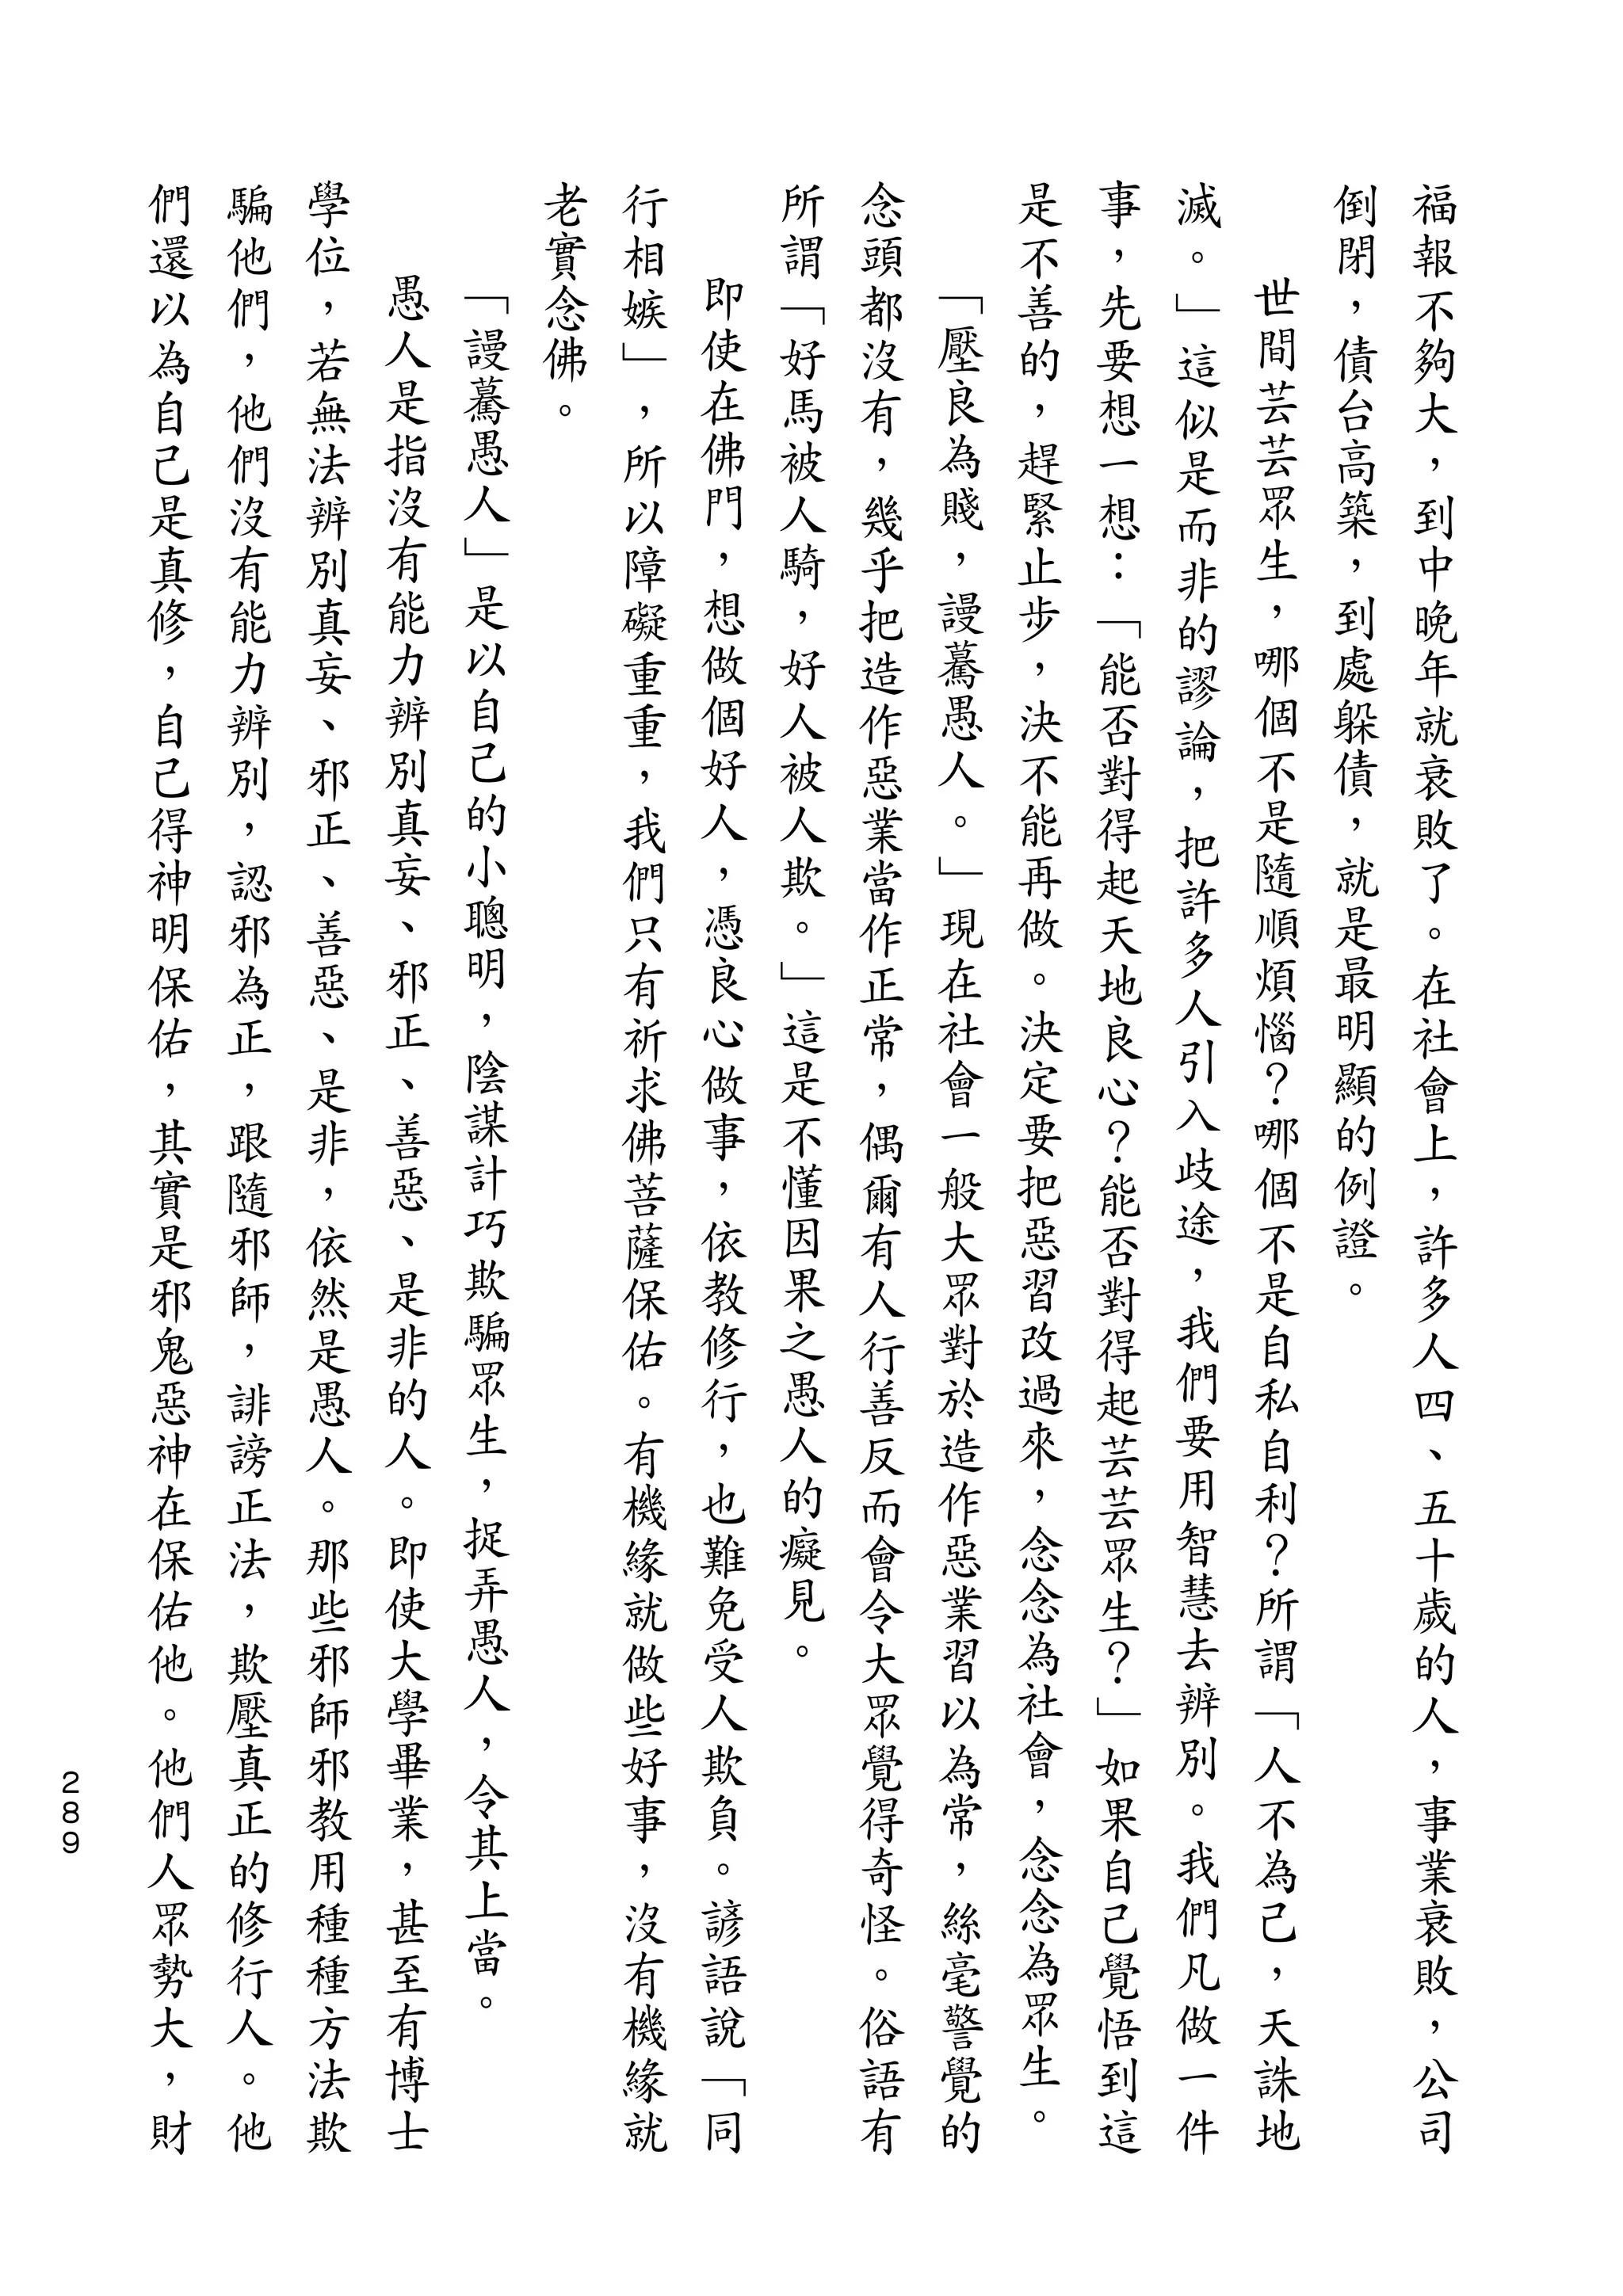 福報不夠大，到中晚年就衰敗了。在社會上，許多人四、五十歲的人，事業衰敗，公司
倒閉，債台高築，到處躲債，就是最明顯的例證。
世間芸芸眾生，哪個不是隨順煩惱？哪個不是自私自利？所謂「人不為己，天誅地
滅。」這似是而非的謬論，把許多人引入歧途，我們要用智慧去辨別。我們凡做一件
事，先要想一想：「能否對得起天地良心？能否對得起芸芸眾生？」如果自己覺悟到這
是不善的，趕緊止步，決不能再做。決定要把惡習改過來，念念為社會，念念為眾生。
「壓良為賤，謾驀愚人。」現在社會一般大眾對於造作惡業習以為常，絲毫警覺的
念頭都沒有，幾乎把造作惡業當作正常，偶爾有人行善反而會令大眾覺得奇怪。俗語有
所謂「好馬被人騎，好人被人欺。」這是不懂因果之愚人的癡見。
即使在佛門，想做個好人，憑良心做事，依教修行，也難免受人欺負。諺語說「同
行相嫉」，所以障礙重重，我們只有祈求佛菩薩保佑。有機緣就做些好事，沒有機緣就
老實念佛。
「謾驀愚人」是以自己的小聰明，陰謀計巧欺騙眾生，捉弄愚人，令其上當。
愚人是指沒有能力辨別真妄、邪正、善惡、是非的人。即使大學畢業，甚至有博士
學位，若無法辨別真妄、邪正、善惡、是非，依然是愚人。那些邪師邪教用種種方法欺
騙他們，他們沒有能力辨別，認邪為正，跟隨邪師，誹謗正法，欺壓真正的修行人。他
們還以為自己是真修，自己得神明保佑，其實是邪鬼惡神在保佑他。他們人眾勢大，財
289